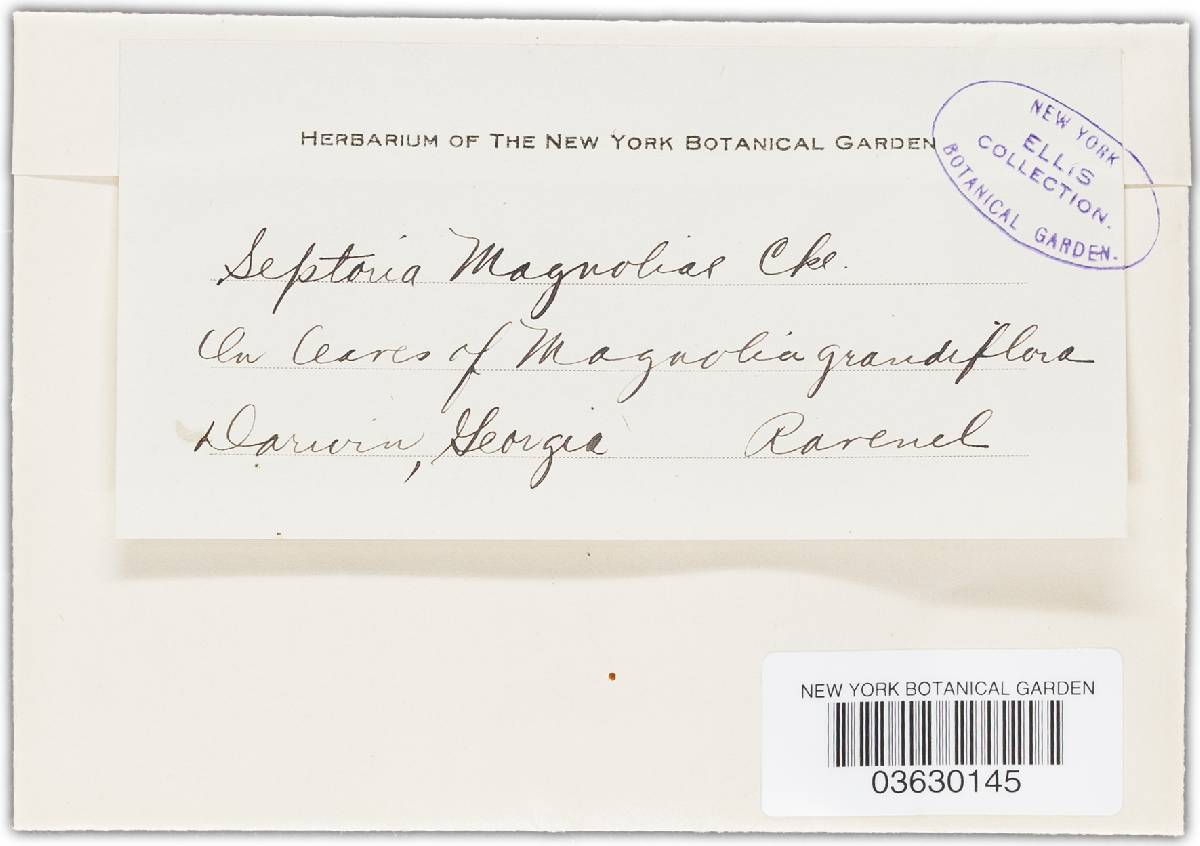 HERBARIUM OF THE NEW YORK BOTANICAL GARDEN
NEW YORK
ELLIS
COLLECTION.
BOTANICAL GARDEN.
Septoria Magnoliae Cke.
On leaves of Magnolia grandiflora
Darwin, Georgia Ravenel
NEW YORK BOTANICAL GARDEN
03630145